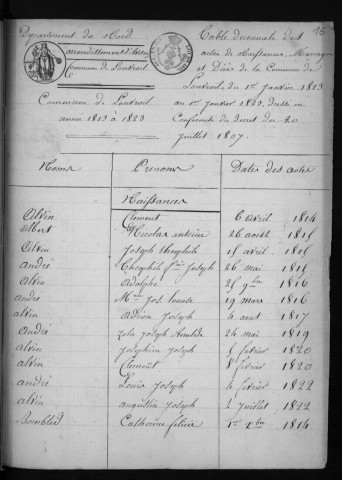 16
Departement du Nord
arrondissement d'Avesnes
Commune de Louvroil
Commune de Louvroil
années 1813 à 1823
Table decennale des
actes de Naissances, Mariages
et Décès de la Commune de
Louvroil du 1er Janvier 1813
au 1er Janvier 1823, dressée en
Conformité du Décret du 20
Juillet 1807.
Noms Prenoms Dates des actes
Naissances
Alvin Clement 6 avril 1814
albert Nicolas antoine 26 août 1815
Alvin Joseph theophile 15 avril 1815
andré Theophile Joseph 26 mai 1815
Alvin Adolphe 25 9bre 1816
andré Mie Jos. louise 19 mars 1816
alvin Adrien Joseph 4 aout 1817
André Joseph 24 mai 1819
alvin Josephine Joseph 5 fevrier 1820
alvin Clement 8 fevrier 1820
andré Louis Joseph 4 fevrier 1822
alvin augustin Joseph 2 juillet 1822
Bombled Catherine felicie 1er xbre 1814